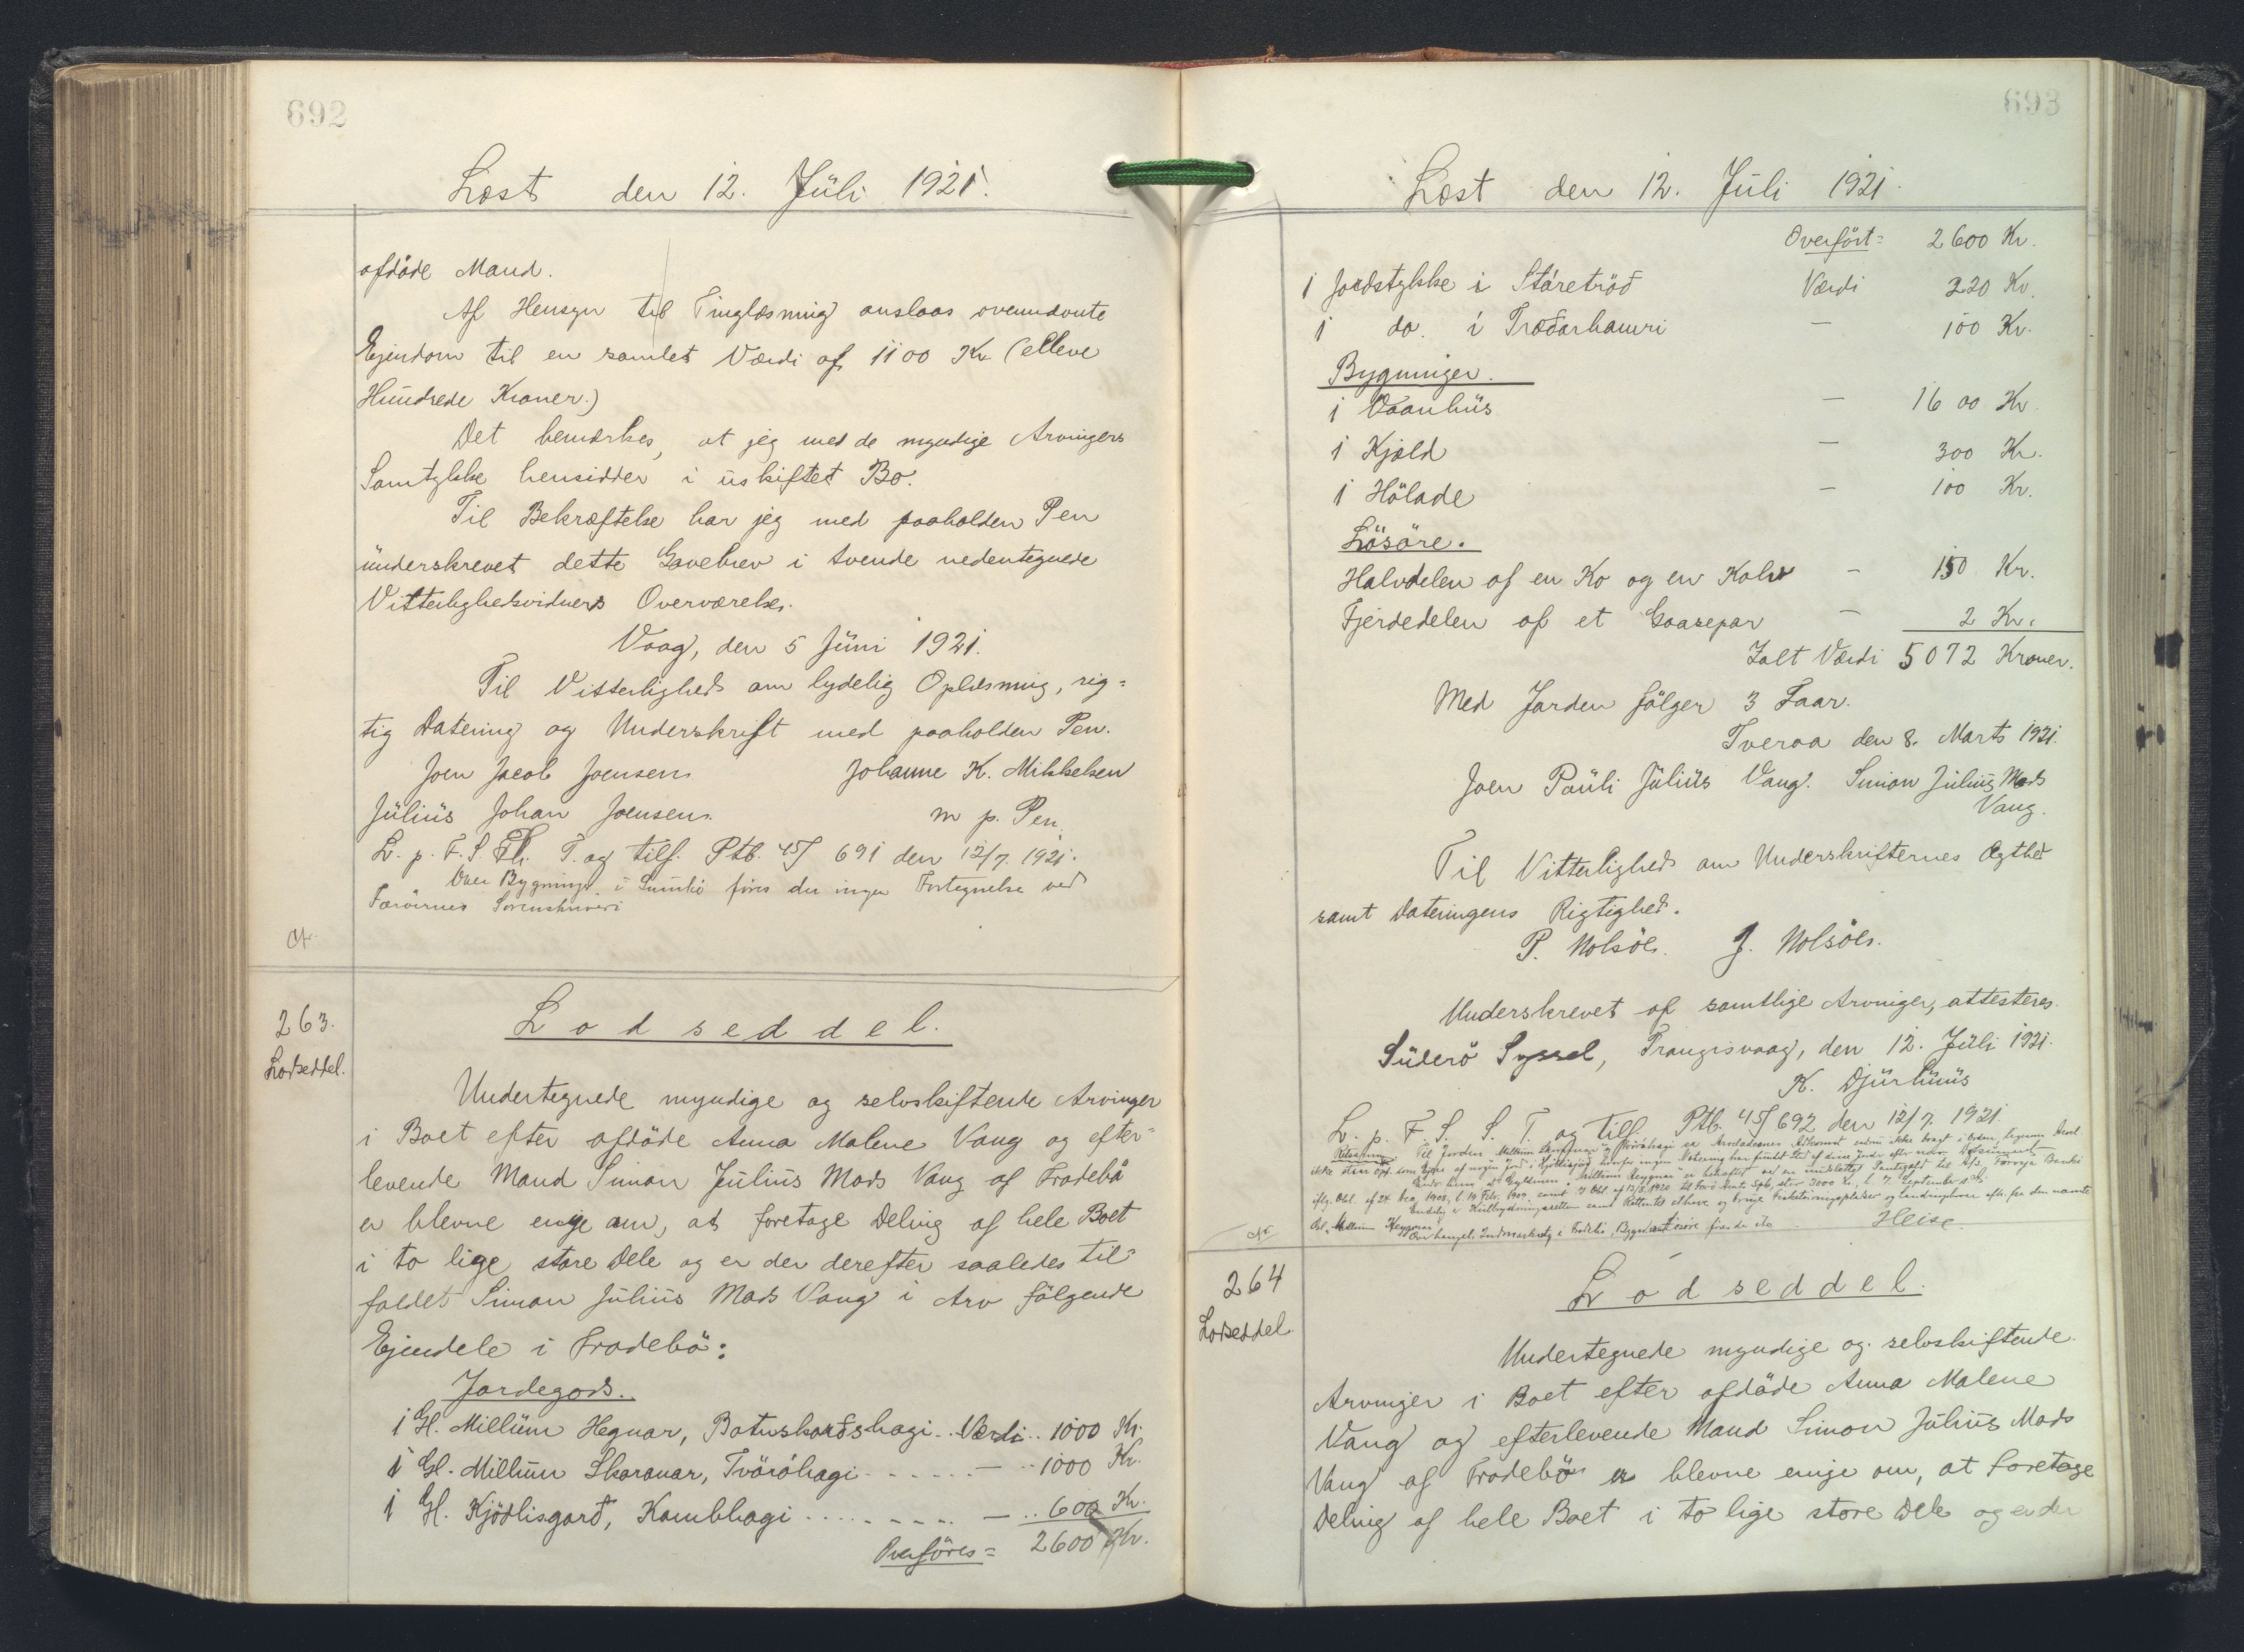 692
Læst den 12. Juli 1921.
afdöde Mand.
Af Hensyn til Tinglæsning anslaas ovennævnte
Ejendom til en samlet Værdi af 1100 Kr (elleve
Hundrede Kroner.)
Det bemærkes, at jeg med de myndige Arvingers
Samtykke hensidder i uskiftet Bo.
Til Bekræftelse har jeg med paaholden Pen
underskrevet dette Gavebrev i tvende nedentegnede
Vitterlighedsvidners Overværelse.
Vaag, den 5 Juni 1921.
Til Vitterlighed om lydelig Oplæsning, rig=
tig Datering og Underskrift med paaholden Pen.
Joen Jacob Joensen Johanne K. Mikkelsen
Julius Johan Joensen. m p. Pen.
L. p. F. S. Th. T. og tilf. Ptb. 45/ 691 den 12/7. 1921.
Over Bygninger i Sumbö föres der ingen Fortegnelse ved
Færöernes Sorenskriveri
263.
Lodseddel.
Lodseddel.
Undertegnede myndige og selvskiftende Arvinger
i Boet efter afdöde Anna Malene Vang og efter=
levende Mand Simon Julius Mads Vang af Frodebö
er blevne enige om, at foretage Deling af hele Boet
i to lige store Dele og er der derefter saaledes til=
faldet Simon Julius Mads Vang i Arv fölgende
Ejendele i Frodebö:
Jordegods.
1 Gl. Millum Hegnar, Botnskarðshagi.. Værdi.. 1000 Kr.
1 Gl. Millum Skoranar, Tvöráhagi - - - - - - — ..1000 Kr.
1 Gl. Kjödlisgarð, Kambhagi . . . . . . . . — .. 600 Kr.
Overföres = 2600 Kr.
693
Læst den 12. Juli 1921.
Overfört = 2600 Kr.
1 Jordstykke i Stáretröð Værdi 220 Kr.
1 do. i Træðarhamri — 100 Kr.
Bygninger.
1 Vaanhus — 1600 Kr.
1 Kjæld — 300 Kr.
1 Hölade — 100 Kr.
Lösöre.
Halvdelen af en Ko og en Kalv — 150 Kr.
Fjerdedelen af et Gaasepar — 2 Kr.
Ialt Værdi 5072 Kroner.
Med Jorden fölger 3 Faar.
Tveraa den 8. Marts 1921.
Joen Pauli Julius Vang. Simon Julius Mads
Vang.
Til Vitterlighed om Underskrifternes Ægthed
samt Dateringens Rigtighed.
P. Nolsöe. J. Nolsöe.
Underskrevet af samtlige Arvinger, attesteres.
Suderö Syssel, Trangisvaag, den 12. Juli 1921.
K. Djurhuus
L. p. F. S. S. T. og tilf. Ptb. 45/692 den 12/7. 1921.
Heise
264
Lodseddel.
Lodseddel.
Undertegnede myndige og selvskiftende
Arvinger i Boet efter afdöde Anna Malene
Vang og efterlevende Mand Simon Julius Mads
Vang af Frodebö er blevne enige om, at foretage
Deling af hele Boet i to lige store Dele og er der